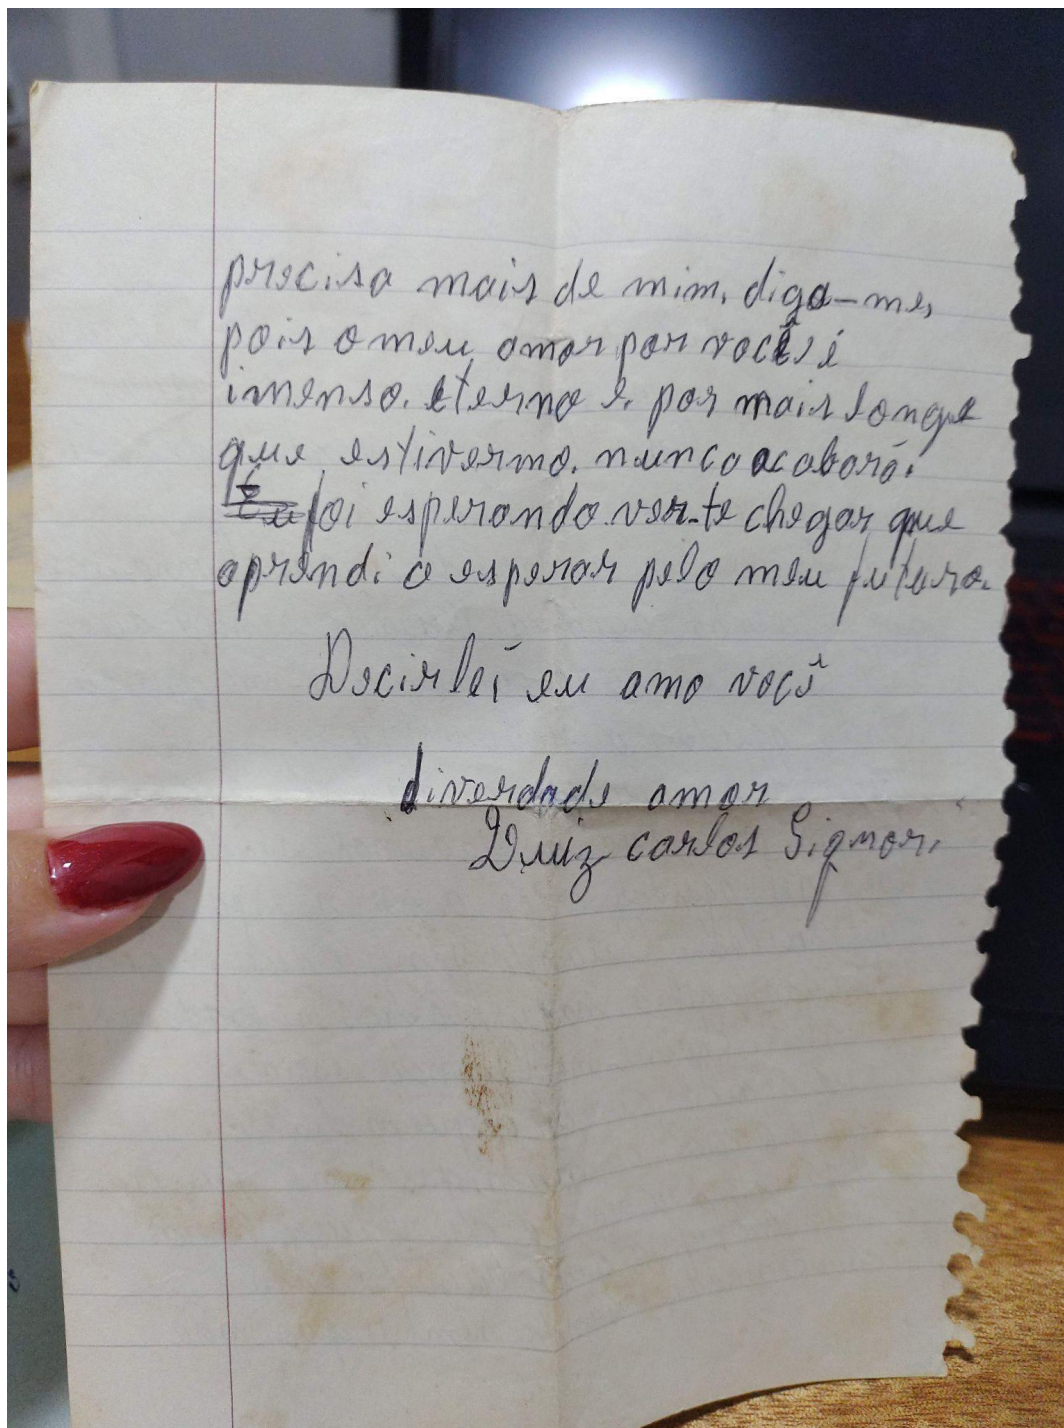 precisa mais de mim, diga-me,
pois o meu amor por você é
imenso. eterno e. por mais longe
que estivermo. nunca acabará.
foi esperando ver-te chegar que
aprendi a esperar pelo meu futuro.
Decirlei eu amo você
diverdade amor
Luiz carlos Signori